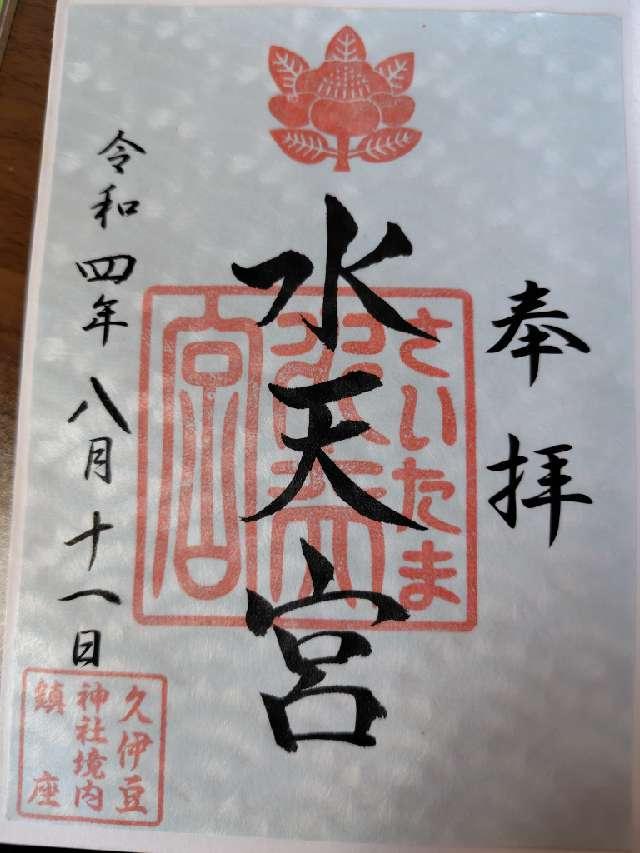 奉拝
さいたま
水天宮
水天宮
令和四年八月十一日
久伊豆
神社境内
鎮座